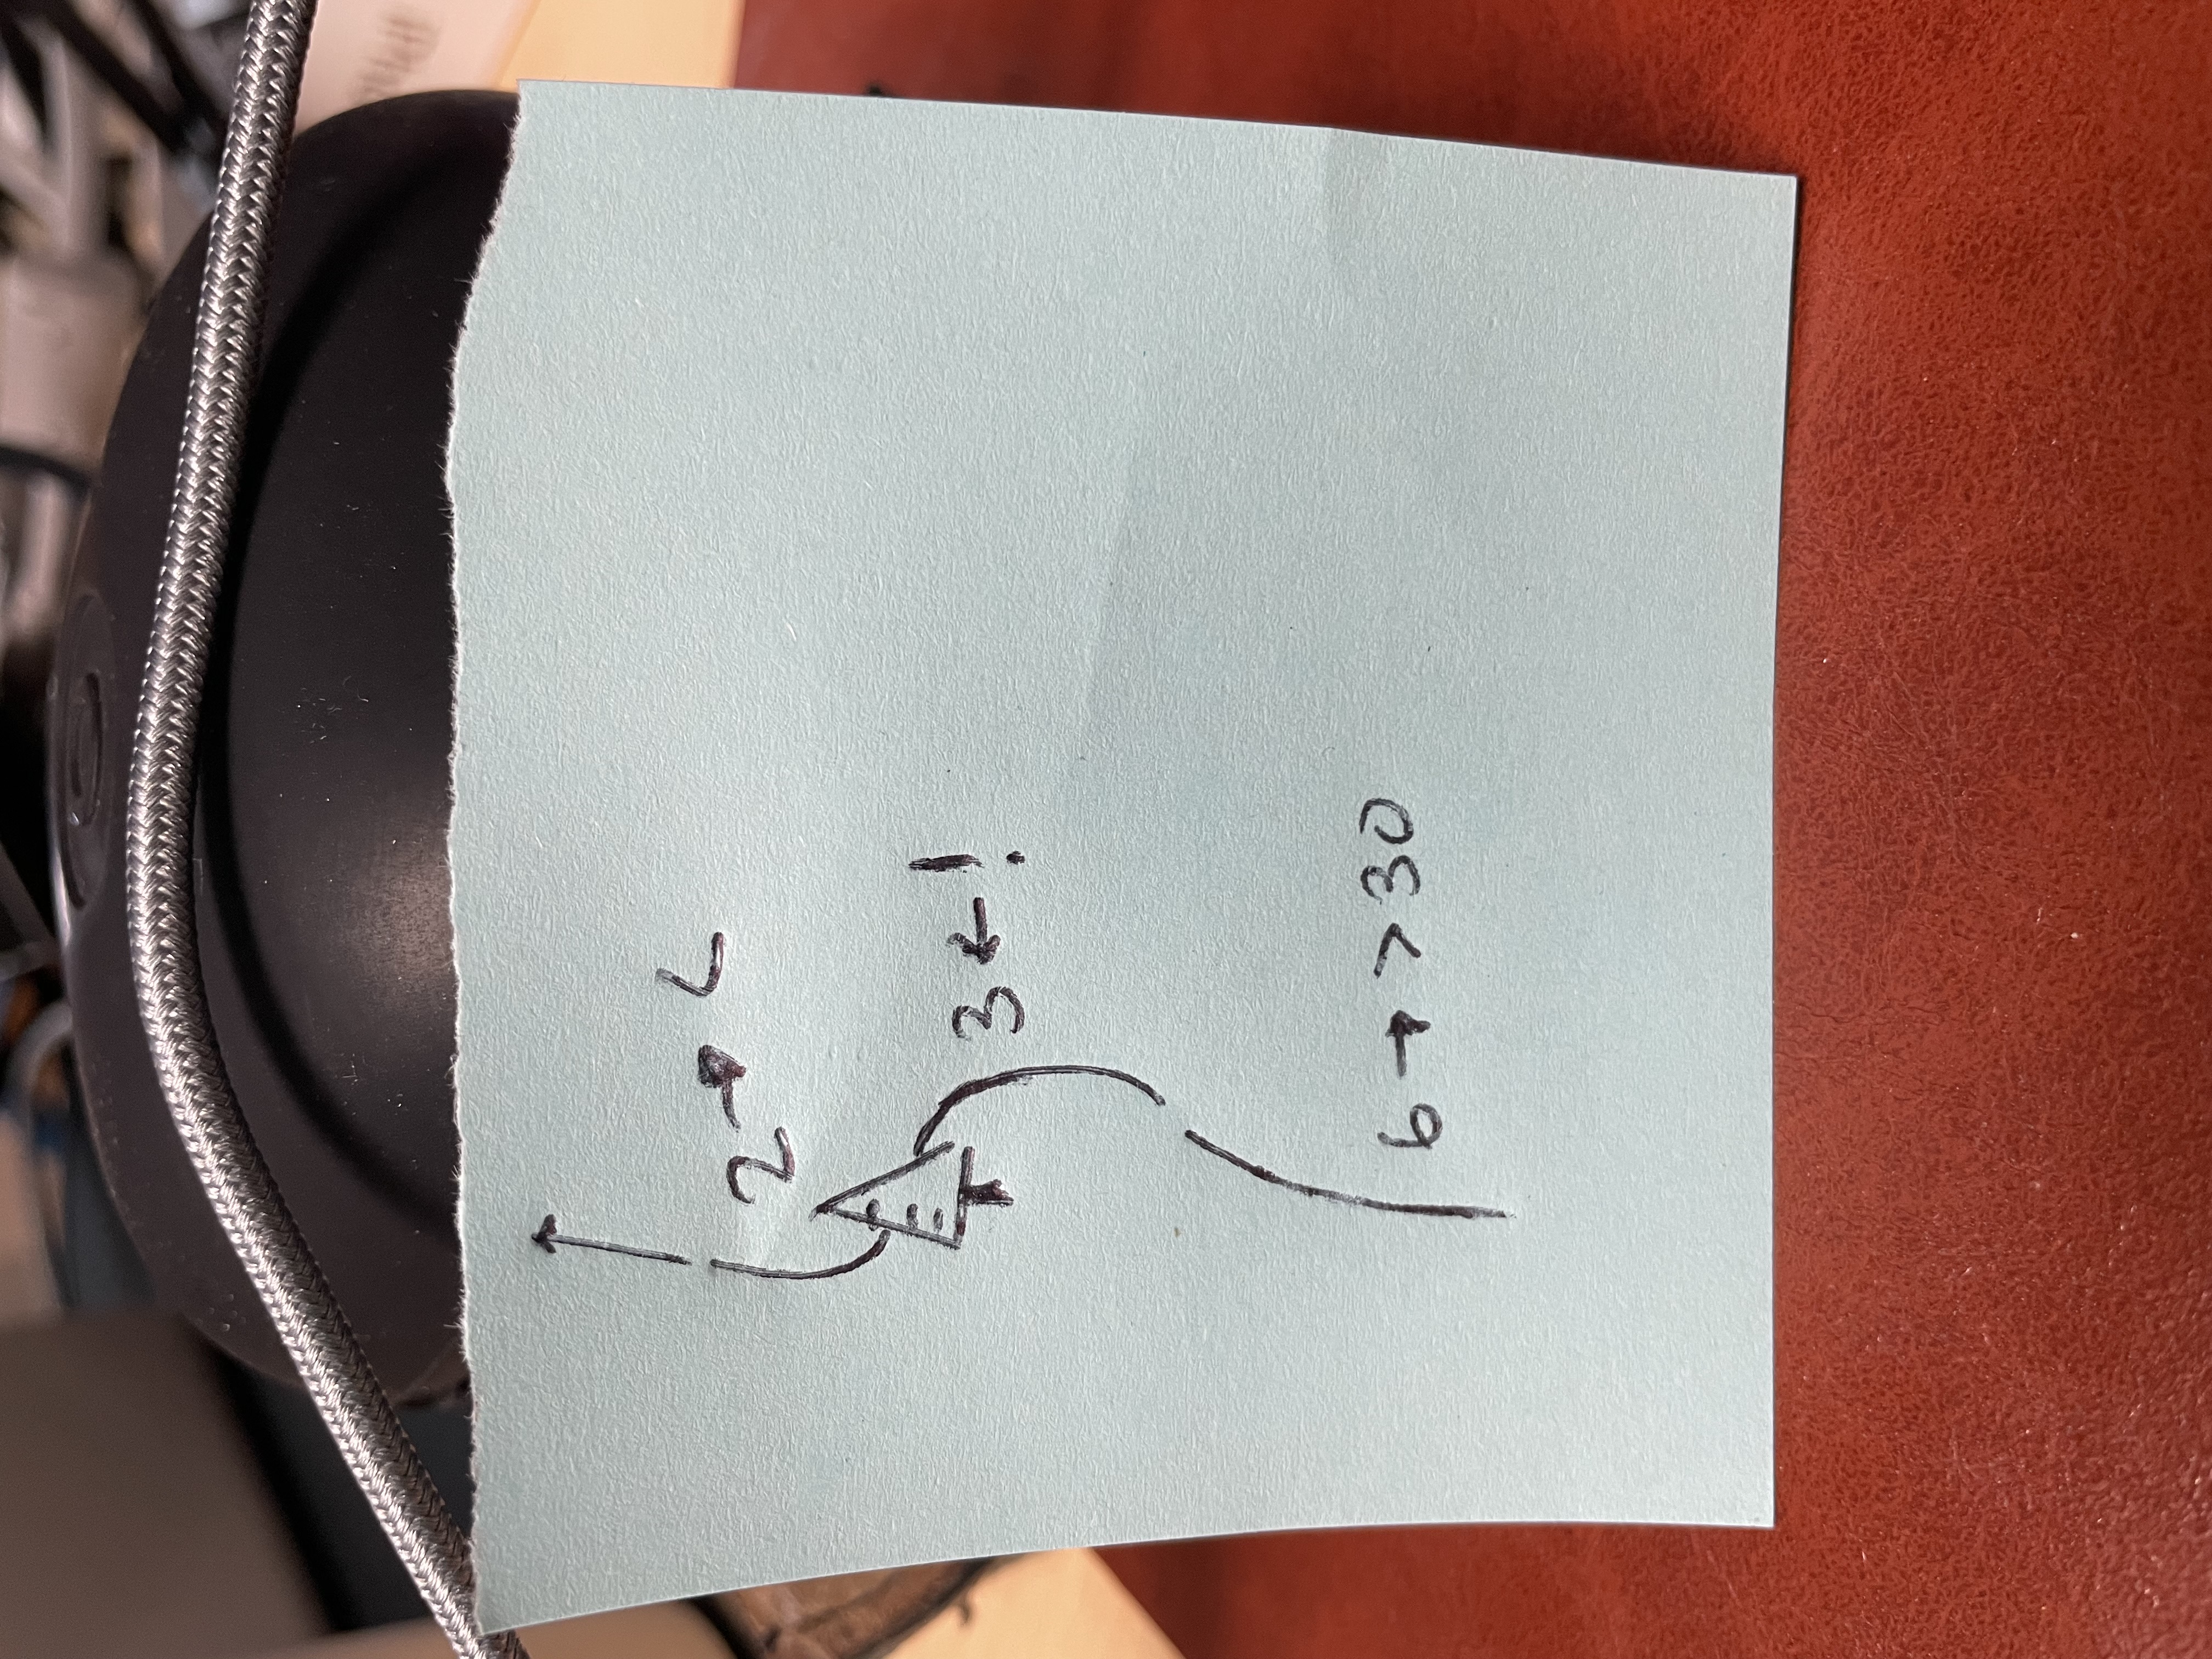 2 → <
3 ← !
6 → > 30